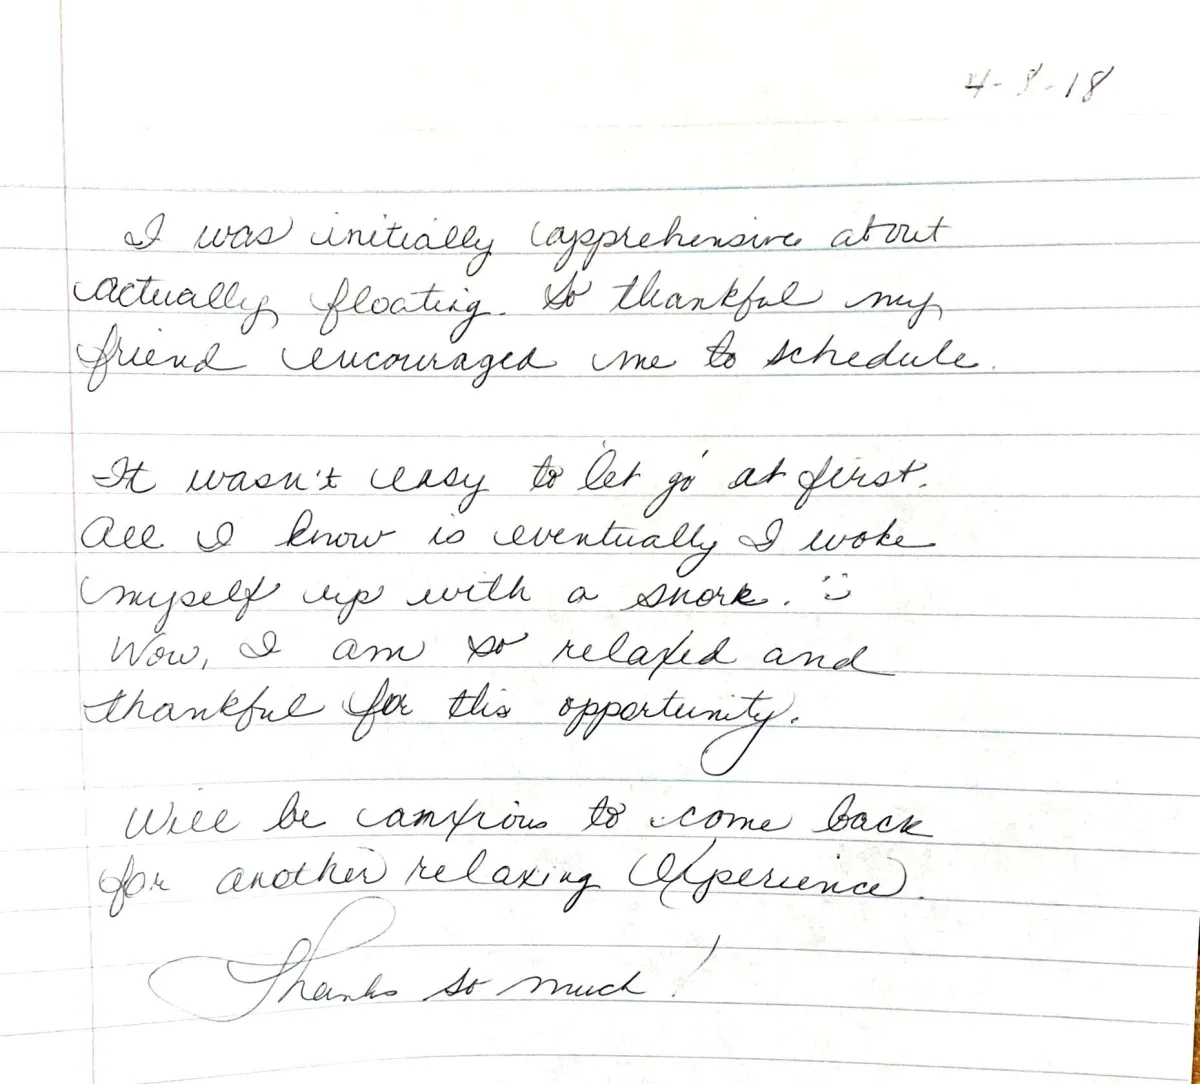 4-8-18
I was initially apprehensive about
actually floating. So thankful my
friend encouraged me to schedule.
It wasn't easy to 'let go' at first.
All I know is eventually I woke
myself up with a snork. :)
Wow, I am so relaxed and
thankful for this opportunity.
Will be anxious to come back
for another relaxing experience.
Thanks so much!